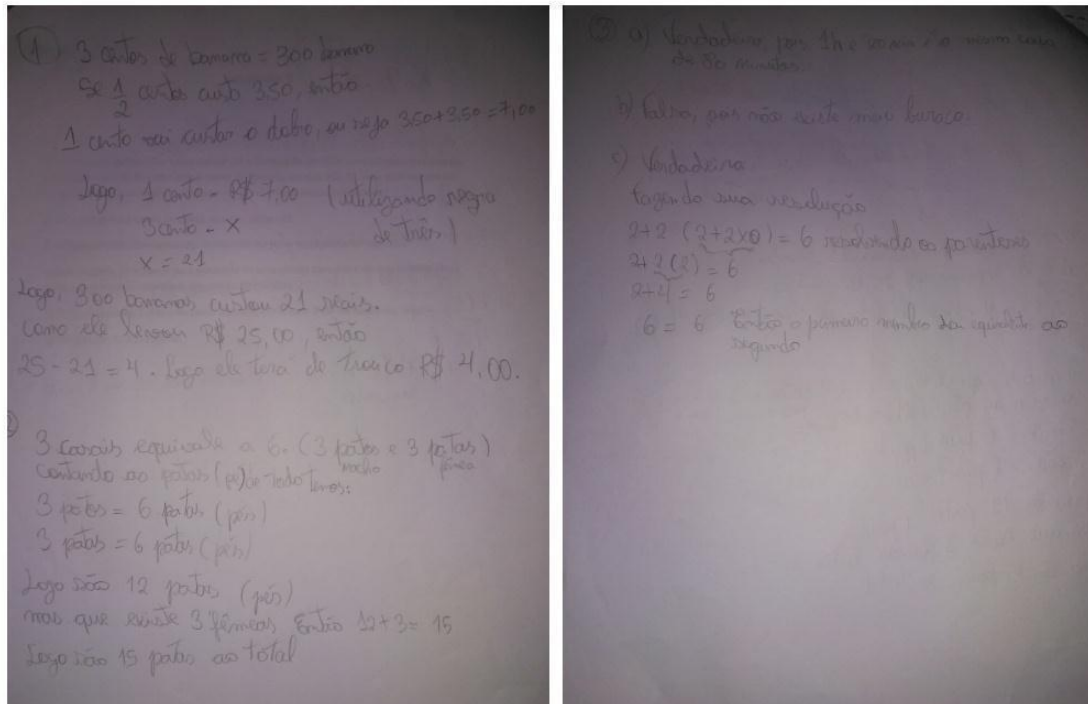 1 3 centos de banana = 300 banana
Se 1/2 centos custa 3,50, então
1 cento vai custar o dobro, ou seja 3,50+3,50=7,00
Logo, 1 cento - R$ 7,00 (utilizando regra
3 cento - x de três)
x = 21
Logo, 300 bananas custou 21 reais.
Como ele R$ 25,00, então
25 - 21 = 4. Logo ele terá de troco R$ 4,00.
3 casais equivale a 6. (3 patos e 3 patas)
macho fêmea
Contando as patas (pé) de todo temos:
3 patos = 6 patas (pés)
3 patas = 6 patas (pés)
Logo são 12 patas (pés)
mas que existe 3 fêmeas Então 12+3= 15
Logo são 15 patas ao total
a) Verdadeiro, pois 1h e 20 min é o mesmo
de 80 minutos.
b) Falso, pois não existe mais buraco.
c) Verdadeira
fazendo sua resolução
2+2 (2+2x0) = 6 resolvendo os parênteses
2+2(2) = 6
2+4 = 6
6 = 6 Então o primeiro membro ao
segundo